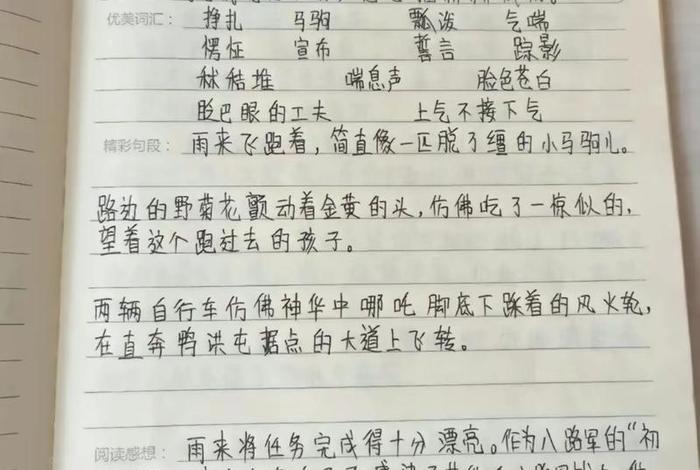 优美词汇: 挣扎 马驹 瓢泼 气喘
愣怔 宣布 誓言 踪影
秫秸堆 喘息声 脸色苍白
眨巴眼的工夫 上气不接下气
精彩句段: 雨来飞跑着,简直像一匹脱了缰的小马驹儿。
路边的野菊花颤动着金黄的头,仿佛吃了一惊似的,
望着这个跑过去的孩子。
两辆自行车仿佛神华中哪吒脚底下踩着的风火轮,
在直奔鸭洪屯据点的大道上飞转。
阅读感想: 雨来将任务完成得十分漂亮。作为八路军的“初